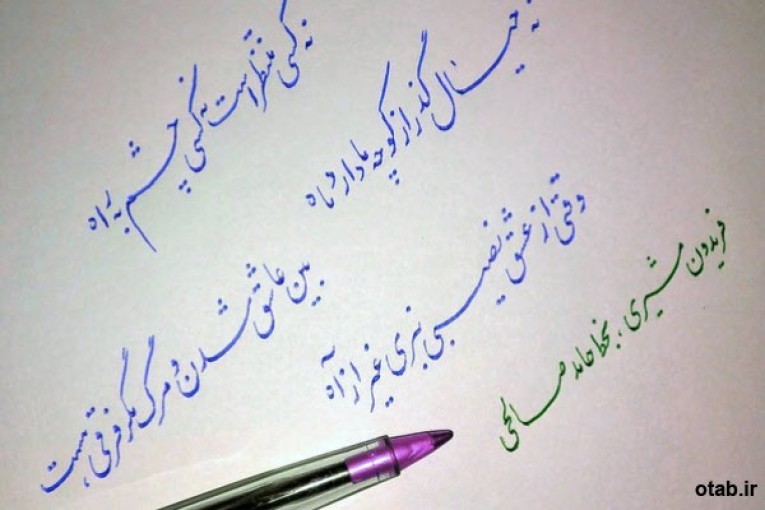 نه کسی منتظر است نه کسی چشم به راه
نه خیال گذر از کوچه ما دارد ماه
بین عاشق شدن و مرگ مگر فرقی هست
وقتی از عشق نصیبی نبری غیر از آه
فریدون مشیری، بخط حامد صالحی
otab.ir